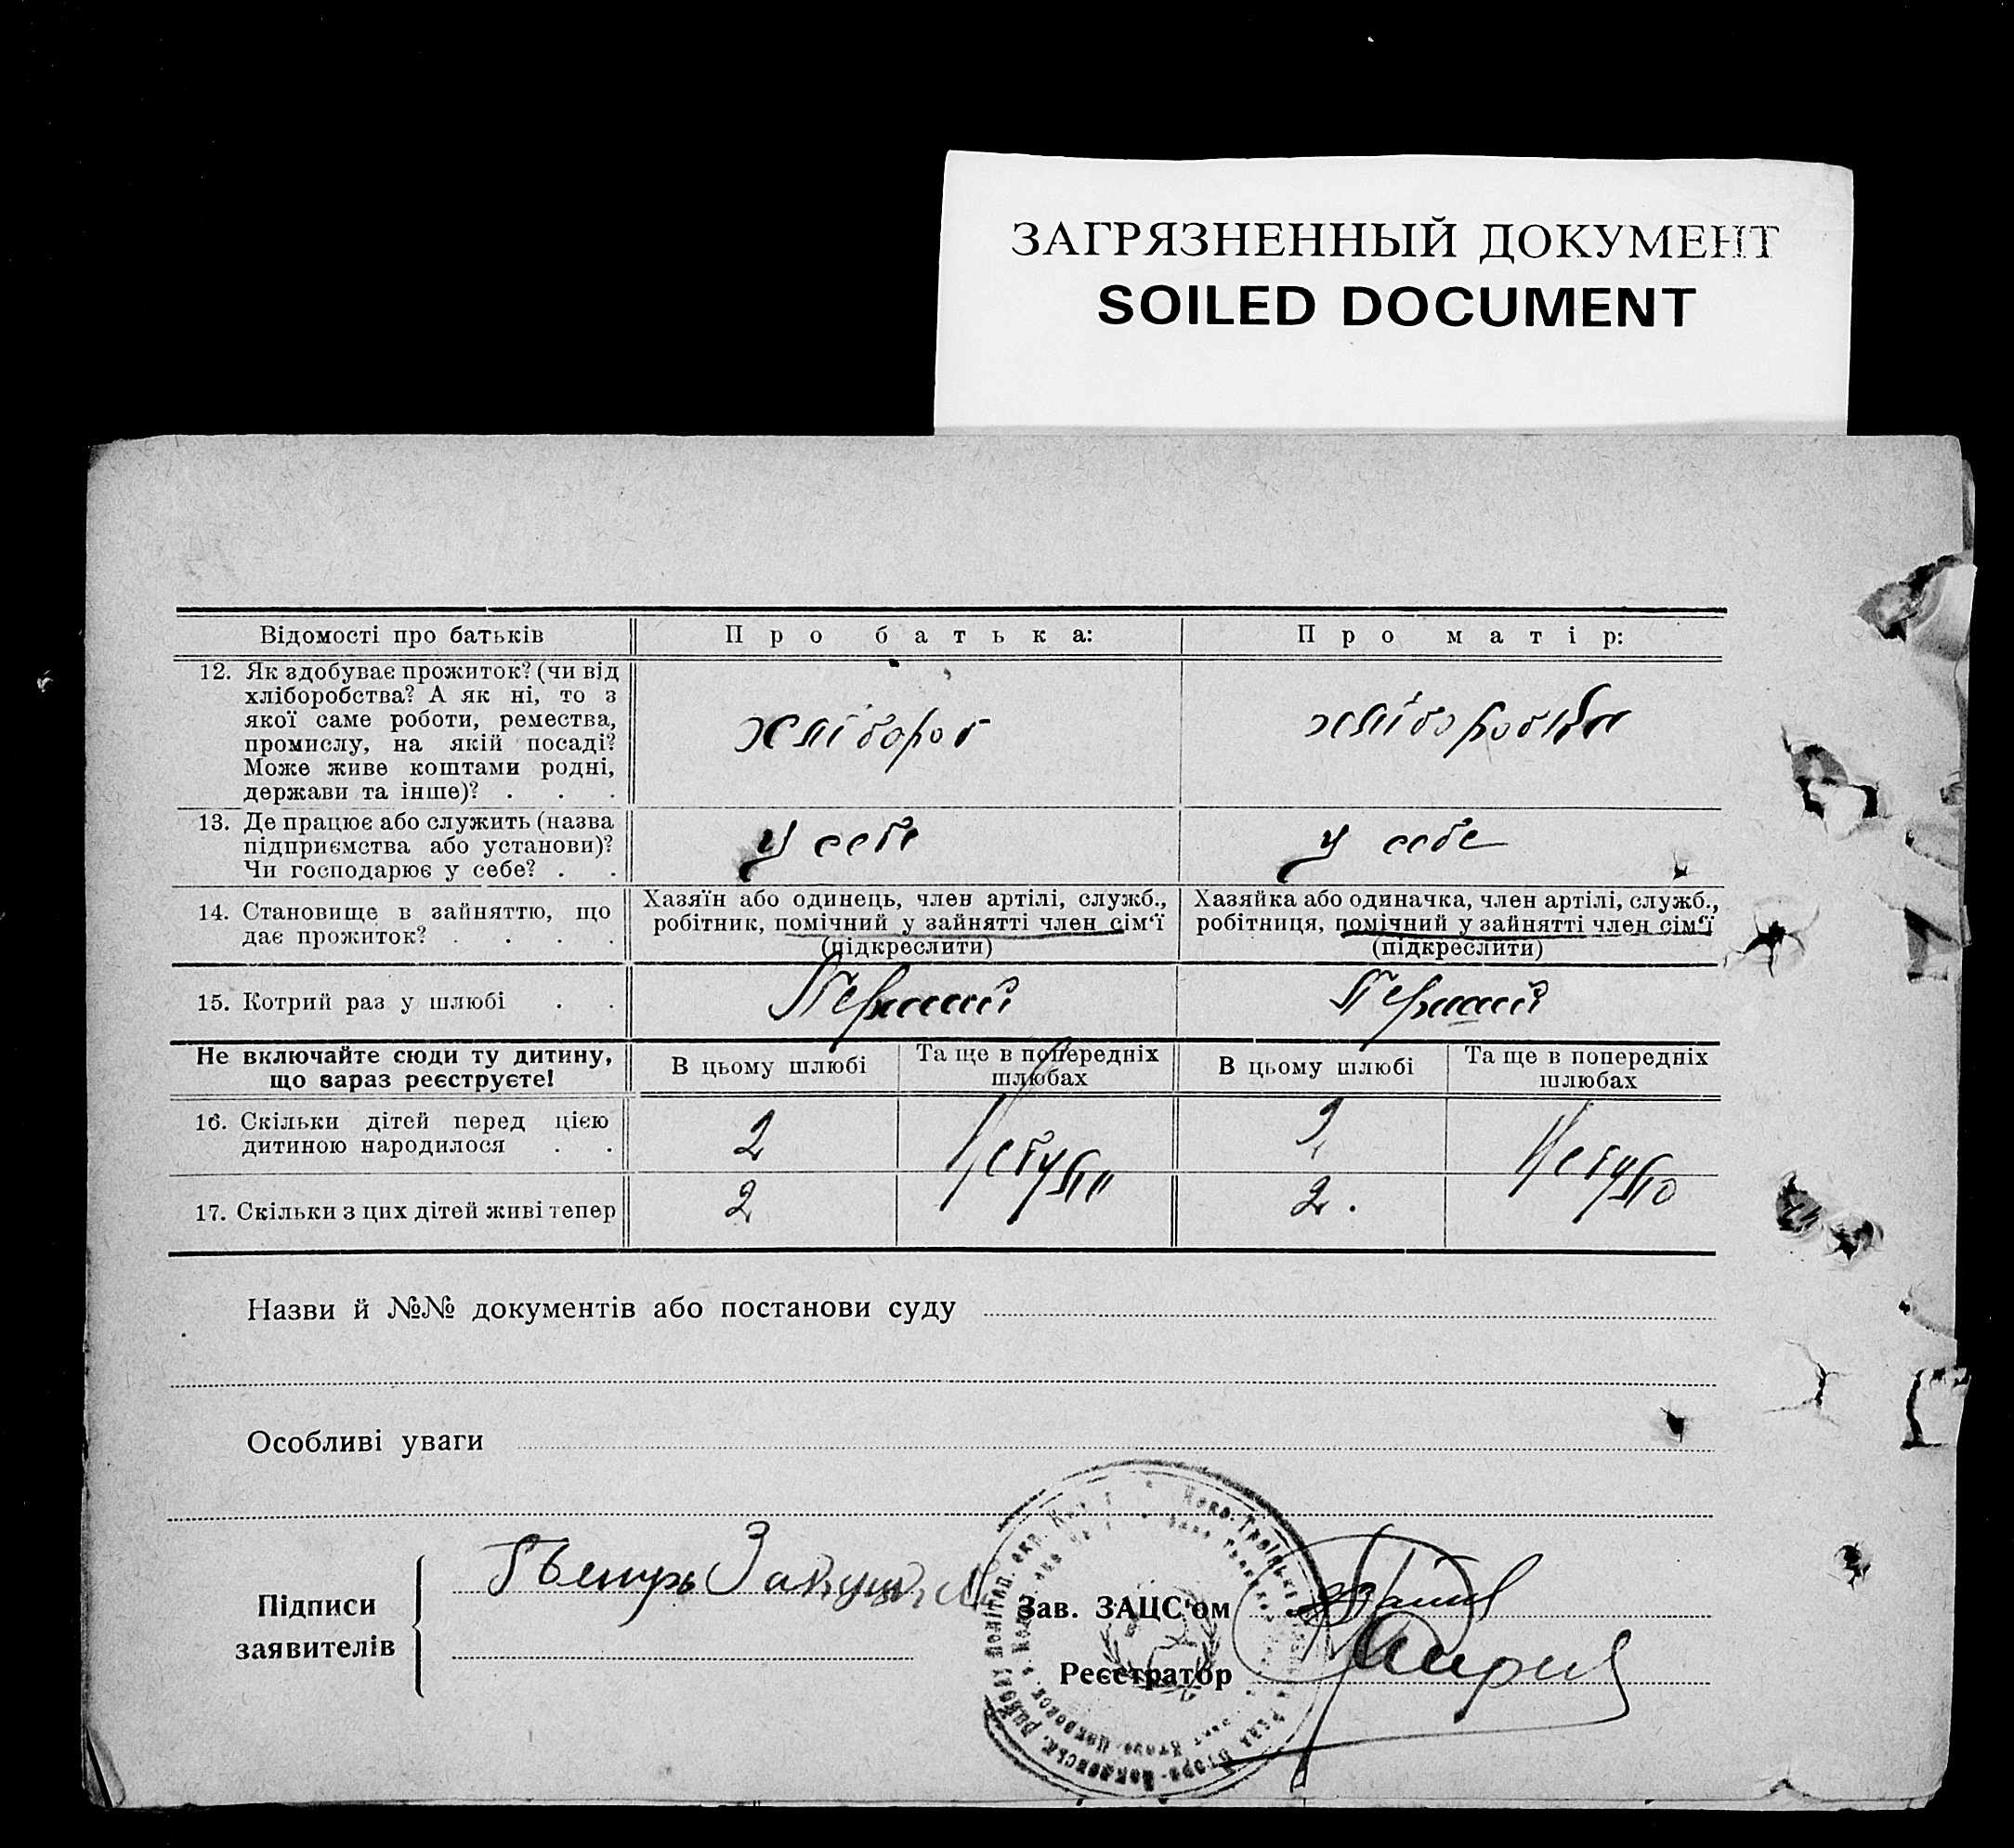 ЗАГРЯЗНЕННЫЙ ДОКУМЕНТ
SOILED DOCUMENT
Відомості про батьків
Про батька:
Про матір:
12. Як здобуває прожиток? (чи від
хліборобства? А як ні, то з
якої саме роботи, ремества,
промислу, на якій посаді?
Може живе коштами родні,
держави та інше)? . . .
хлібороб
хліборобка
13. Де працює або служить (назва
підприємства або установи)?
Чи господарює у себе? . .
у себе
у себе
14. Становище в зайняттю, що
дає прожиток? . . . .
Хазяїн або одинець, член артілі, служб.,
робітник, помічний у зайнятті член сім'ї
(підкреслити)
Хазяйка або одиначка, член артілі, служб.,
робітниця, помічний у зайнятті член сім'ї
(підкреслити)
15. Котрий раз у шлюбі . .
Перший
Перший
Не включайте сюди ту дитину,
що зараз реєструєте!
В цьому шлюбі
Та ще в попередніх
шлюбах
В цьому шлюбі
Та ще в попередніх
шлюбах
16. Скільки дітей перед цією
дитиною народилося . .
2
Небуло
2
Небуло
17. Скільки з цих дітей живі тепер
2
2.
Назви й №№ документів або постанови суду
Особливі уваги
Підписи
заявителів
Петрь
Зав. ЗАЦС'ом
Реєстратор